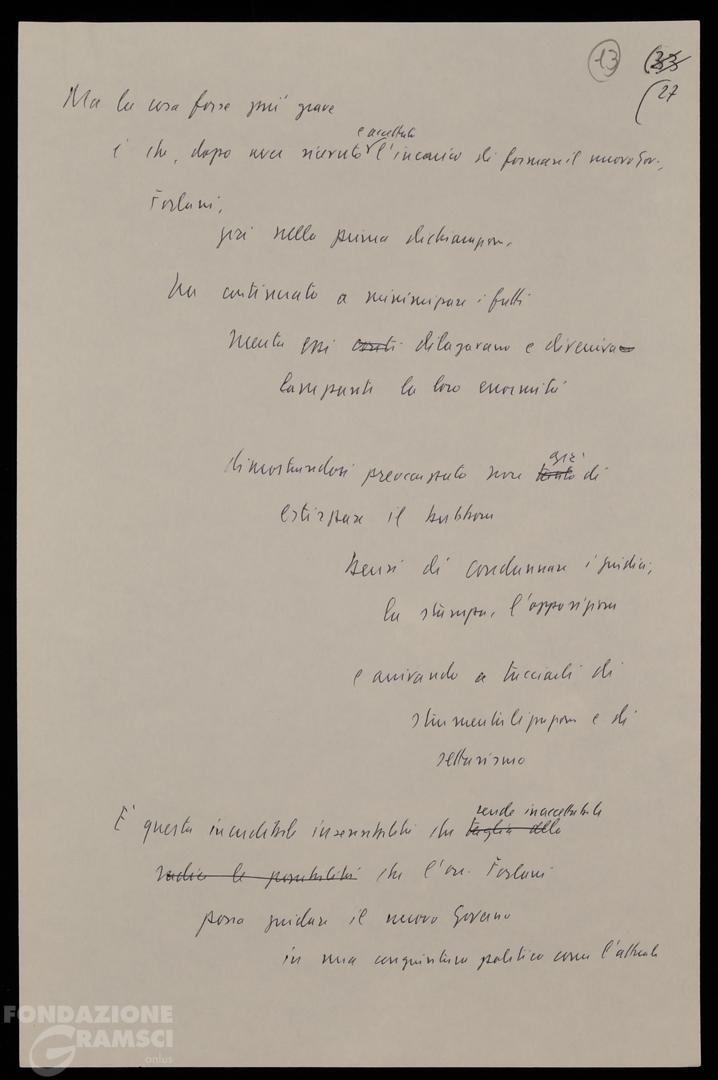 13
33
27
Ma la cosa forse più grave
e accettato
è che, dopo aver ricevuto l'incarico di formare il nuovo Gov.,
Forlani,
già nella prima dichiarazion.
ha continuato a minimizzare i fatti
mentre essi dilagavano e diveniva
lampante la loro enormità
già
dimostrandosi preoccupato non tanto di
estirpare il bubbone
bensì di condannare i giudici,
la stampa, l'opposizione
e arrivando a tacciarli di
strumentalizzazione e di
settarismo
rende inaccettabile
È questa incredibile insensibilità che taglia alla
radice la possibilità che l'on. Forlani
possa guidare il nuovo Governo
in una congiuntura politica come l'attuale
FONDAZIONE
GRAMSCI
onlus